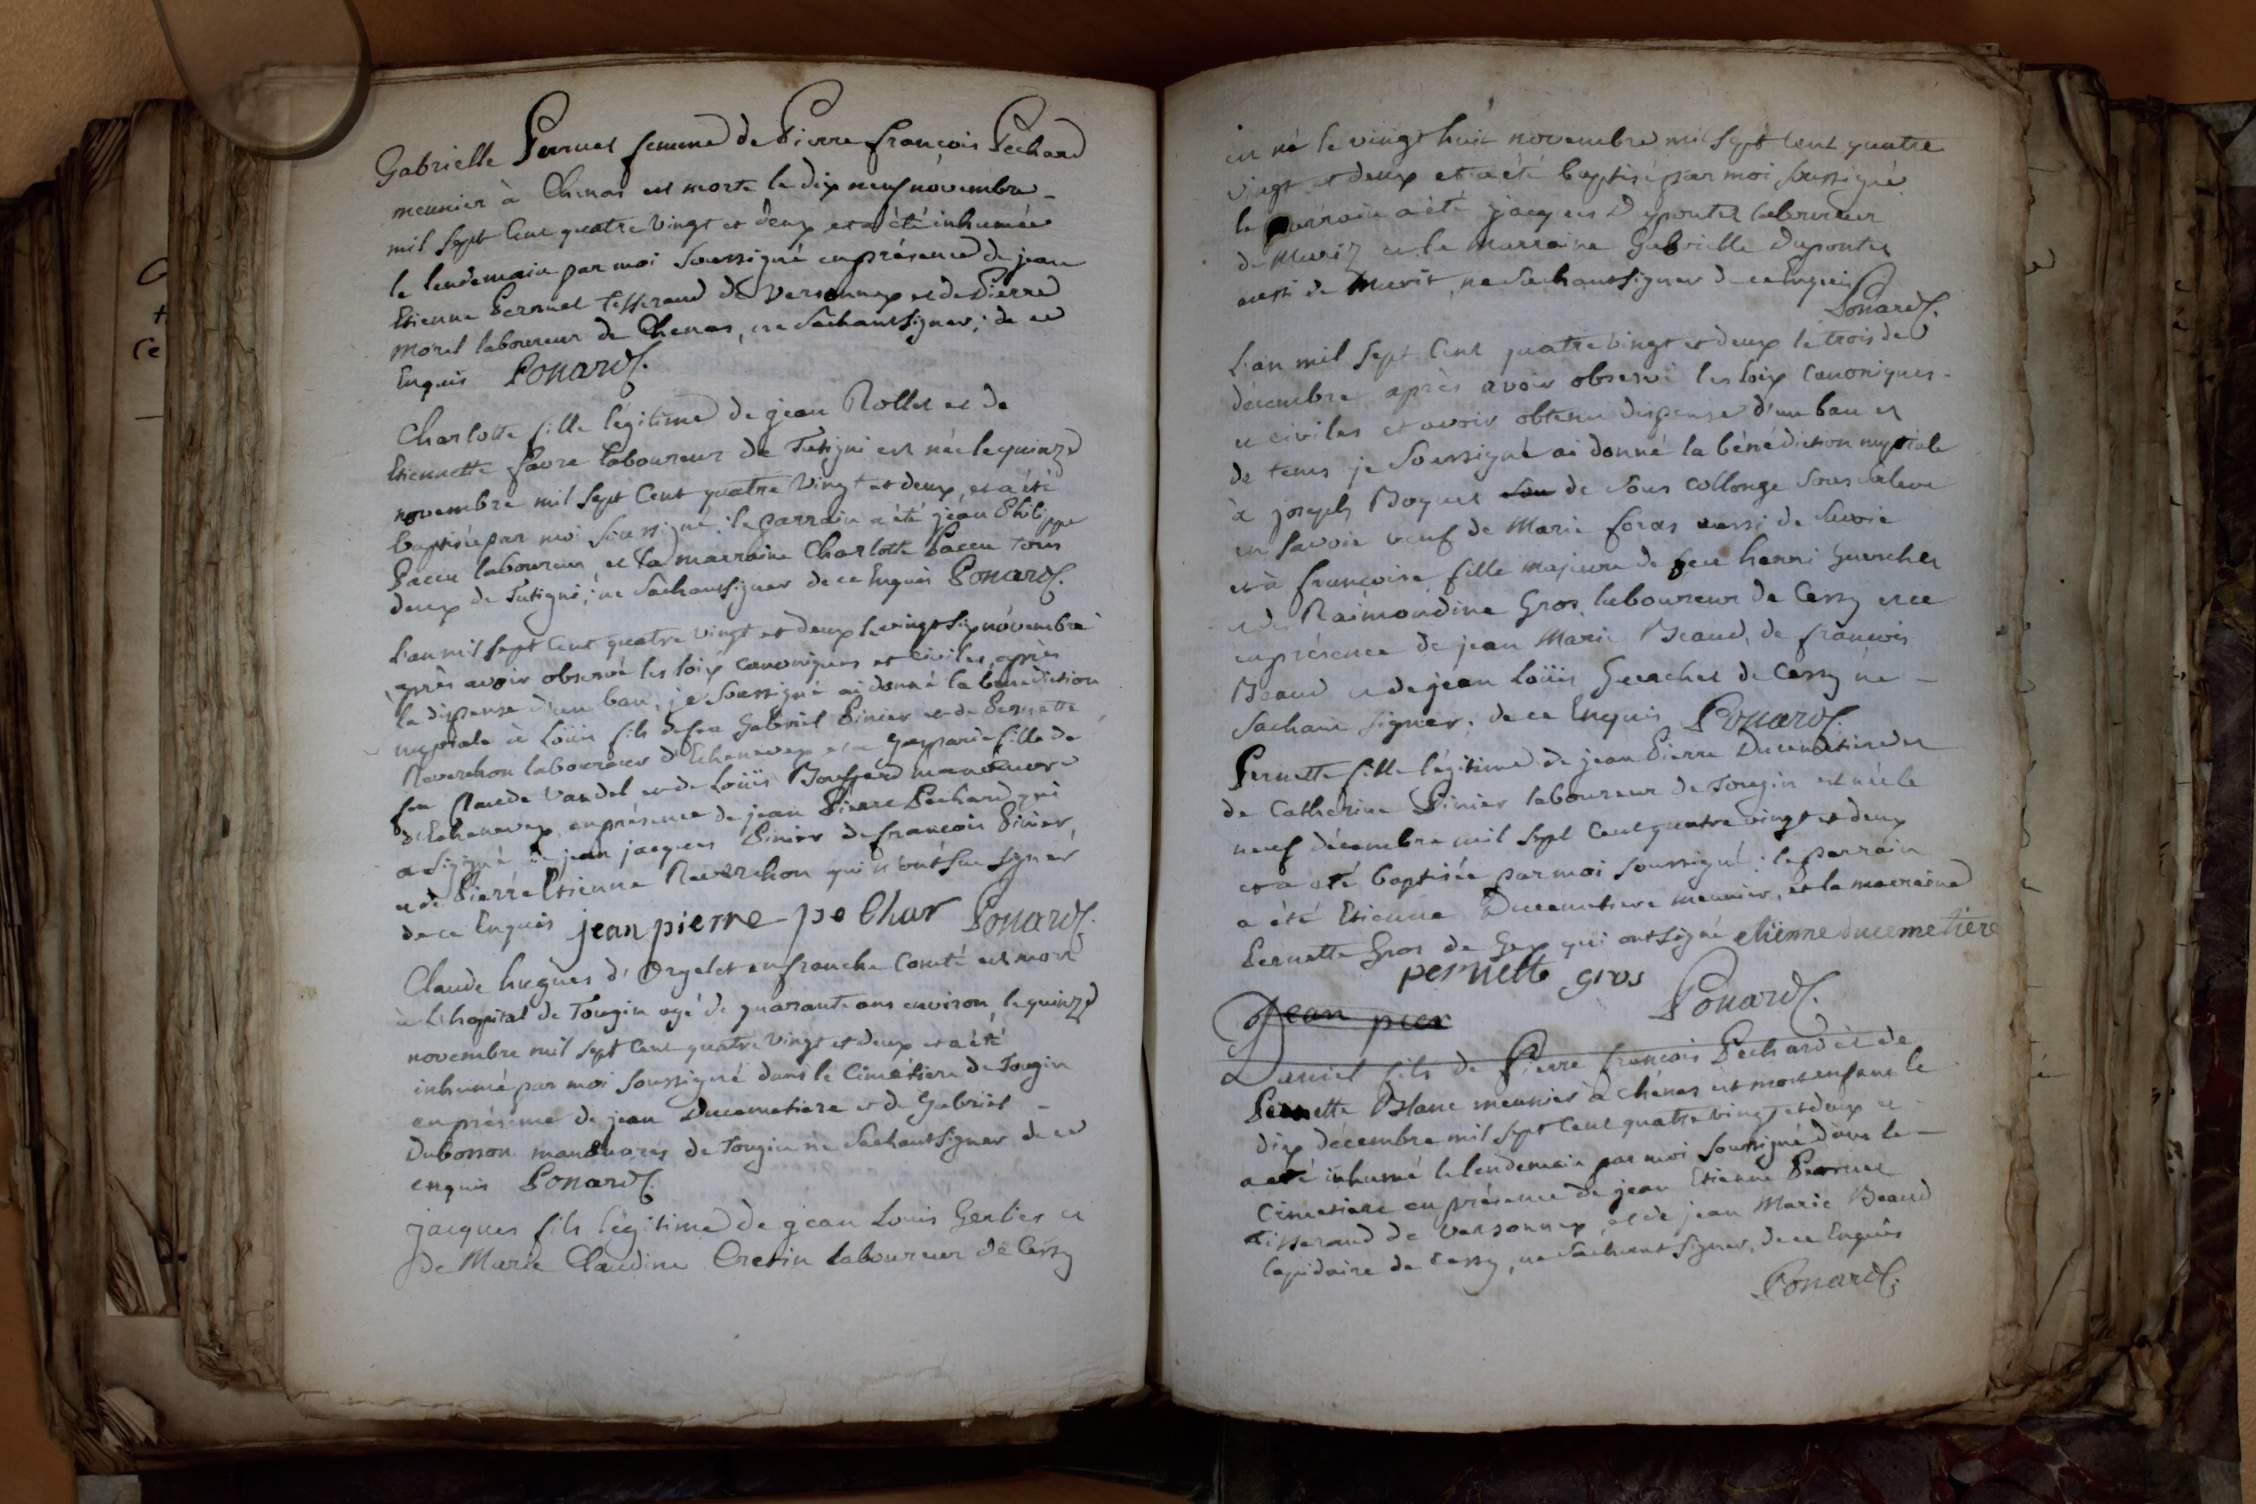 Gabrielle Pernet femme de Pierre françois Pechard
meunier à Chenas est morte le dix neuf novembre
mil sept Cent quatre vingt et deux et a été inhumée
le lendemain par moi soussigné en présence de jean
Etienne Pernet tisserand de Versonnex et de Pierre
Morel laboureur de Chenas, ne sachant signer; de ce
Enquis Ponard.
Charlotte fille légitime de jean Rollet et de
Etiennette favre laboureur de Tutigni est née le quinze
novembre mil sept Cent quatre Vingt et deux, et a été
baptisée par moi soussigné: le parrain a été jean Philippe
Paccu laboureur, et la marraine Charlotte Paccu tous
deux de Tutigni; ne sachant signer de ce Enquis Ponard.
L'an mil sept Cent quatre vingt et deux le vingt six novembre
après avoir observé les loix canoniques et civiles, après
la dispense d'un ban, je soussigné ai donné la bénédiction
nuptiale à Loüis fils de feu Gabriel Pinier et de Pernette
Reverchon laboureur d'Echenevex et a Gasparde fille de
feu Claude Vandel et de Loüis manœuvre
d'Echenevex, en présence de jean Pierre Pechard qui
a signé de jean jacques Pinier de françois Pinier,
et de Pierre Etienne Reverchon qui n'ont su signer
de ce Enquis jean pierre pe Char Ponard.
Claude hugues d'Orgelet en franche Comté est mort
à l'hopital de Tougin agé de quarante ans environ, le quinze
novembre mil sept Cent quatre vingt et deux et a été
inhumé par moi soussigné dans le Cimetiere de Tougin
en présence de jean Ducemetiere et de Gabriel
Dubosson manœuvres de Tougin ne sachant signer de ce
enquis Ponard.
jacques fils légitime de jean Louis Gerlier et
de Marie Claudine Cretin laboureur de Cessy
est né le vingt huit novembre mil sept cent quatre
vingt et deux et a été baptisé par moi soussigné.
le parrain a été jacques Duponter laboureur
de Muriz et la marraine Gabrielle Duponter
aussi de Murit, ne sachant signer de ce Enquis
Ponard.
L'an mil sept Cent quatre vingt et deux le trois de
décembre après avoir observé les loix Canoniques
et civiles et avoir obtenu dispense d'un ban et
de tems je soussigné ai donné la bénédiction nuptiale
à joseph Boquet de sous Collonge sous Saleve
en Savoie veuf de Marie foras aussi de Savoie
et à françoise fille majeure de feu henri Guerchet
et de Raimondine Gros laboureur de Cessy et ce
en présence de jean Marie Beaud, de françois
Beaud et de jean Loüis Guerchet de Cessy ne
sachant signer; de ce Enquis Ponard.
Pernette fille légitime de jean Pierre Ducemetiere et
de Catherine Pinier laboureur de Tougin est née le
neuf décembre mil sept Cent quatre vingt et deux
et a été baptisée par moi soussigné: le parrain
a été Etienne Ducemetiere meunier, et la marraine
Pernette Gros de Gex qui ont signé etienne ducemetiere
pernette gros Ponard.
Jean pier
Daniel fils de Pierre françois Pechard et de
Pernette Blanc meunier à chénas est mort enfant le
dix décembre mil sept Cent quatre vingt et deux et
a été inhumé le lendemain par moi soussigné dans le
Cimetiere en présence de jean Etienne Pernet
tisserand de versonnex, et de jean Marie Beaud
lapidaire de Cessy, ne sachant signer, de ce Enquis
Ponard.